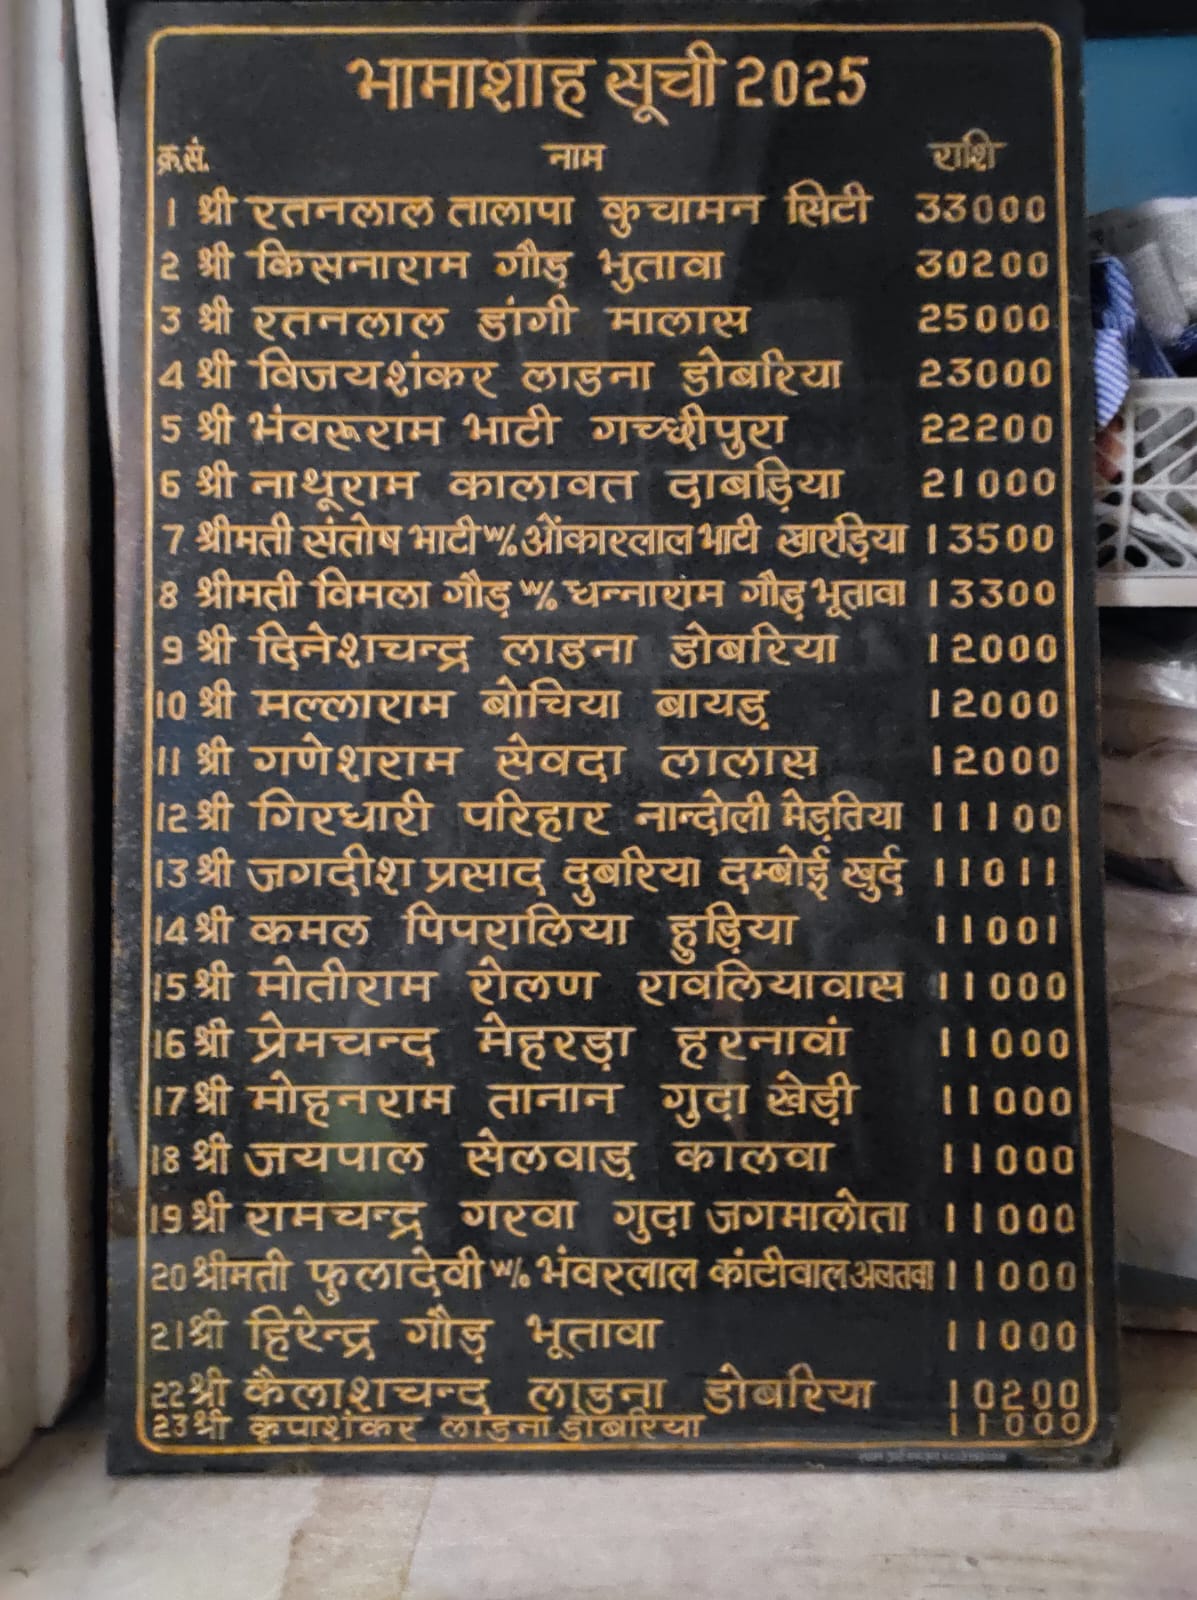 भामाशाह सूची 2025
क्र.सं. नाम राशि
1 श्री रतनलाल तालापा कुचामन सिटी 33000
2 श्री किसनाराम गौड़ भुतावा 30200
3 श्री रतनलाल डांगी मालास 25000
4 श्री विजयशंकर लाडना डोबरिया 23000
5 श्री भंवरूराम भाटी गच्छीपुरा 22200
6 श्री नाथूराम कालावत दाबड़िया 21000
7 श्रीमती संतोष भाटी w/o ओंकारलाल भाटी खारड़िया 13500
8 श्रीमती विमला गौड़ w/o धन्नाराम गौड़ भूतावा 13300
9 श्री दिनेशचन्द्र लाडना डोबरिया 12000
10 श्री मल्लाराम बोचिया बायड़ 12000
11 श्री गणेशराम सेवदा लालास 12000
12 श्री गिरधारी परिहार नान्दोली मेड़तिया 11100
13 श्री जगदीश प्रसाद दुबरिया दम्बोई खुर्द 11011
14 श्री कमल पिपरालिया हुड़िया 11001
15 श्री मोतीराम रोलण रावलियावास 11000
16 श्री प्रेमचन्द मेहरड़ा हरनावां 11000
17 श्री मोहनराम तानान गुढ़ा खेड़ी 11000
18 श्री जयपाल सेलवाड़ कालवा 11000
19 श्री रामचन्द्र गरवा गुढ़ा जगमालोता 11000
20 श्रीमती फुलादेवी w/o भंवरलाल कांटीवाल अलतवा 11000
21 श्री हिरेन्द्र गौड़ भूतावा 11000
22 श्री कैलाशचन्द लाडना डोबरिया 10200
23 श्री कृपाशंकर लाडना डोबरिया 11000